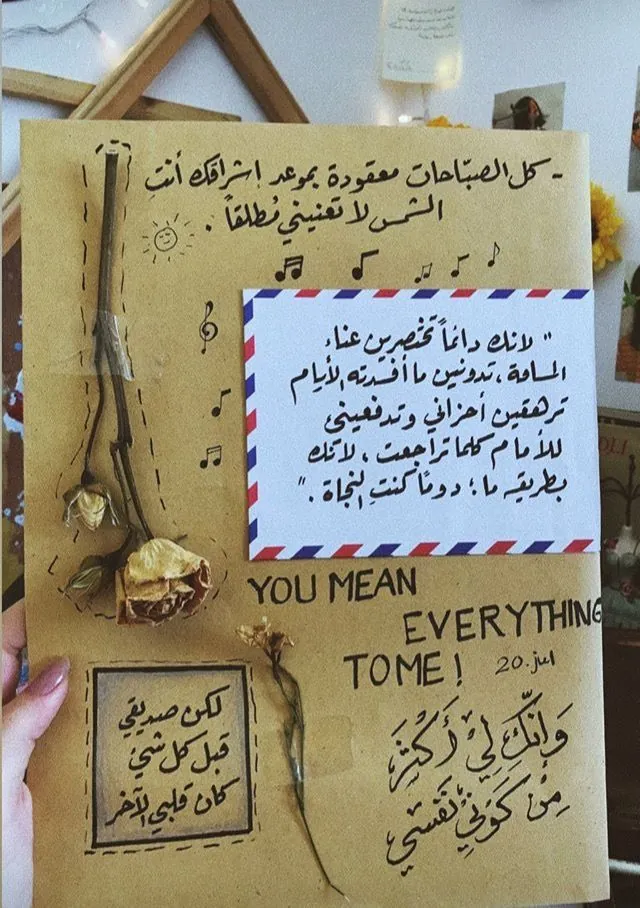 - كل الصبّاحات معقودة بموعد إشراقك أنتِ
الشمس لا تعنيني مُطلقاً .
" لانك دائماً تختصرين عناء
المسافة ، تدونين ما أفسدته الأيام
ترهقين أحزاني وتدفعيني
للأمام كلما تراجعت ، لانك
بطريقه ما ؛ دومًا كنتِ النجاة . "
YOU MEAN
EVERYTHING
TO ME !
20.jul
لكن صديقي
قبل كل شيْ
كان قلبي الآخر
وَإنّكِ لِي أَكْثَرَ
مِنْ كَوَنِي نَفَسي